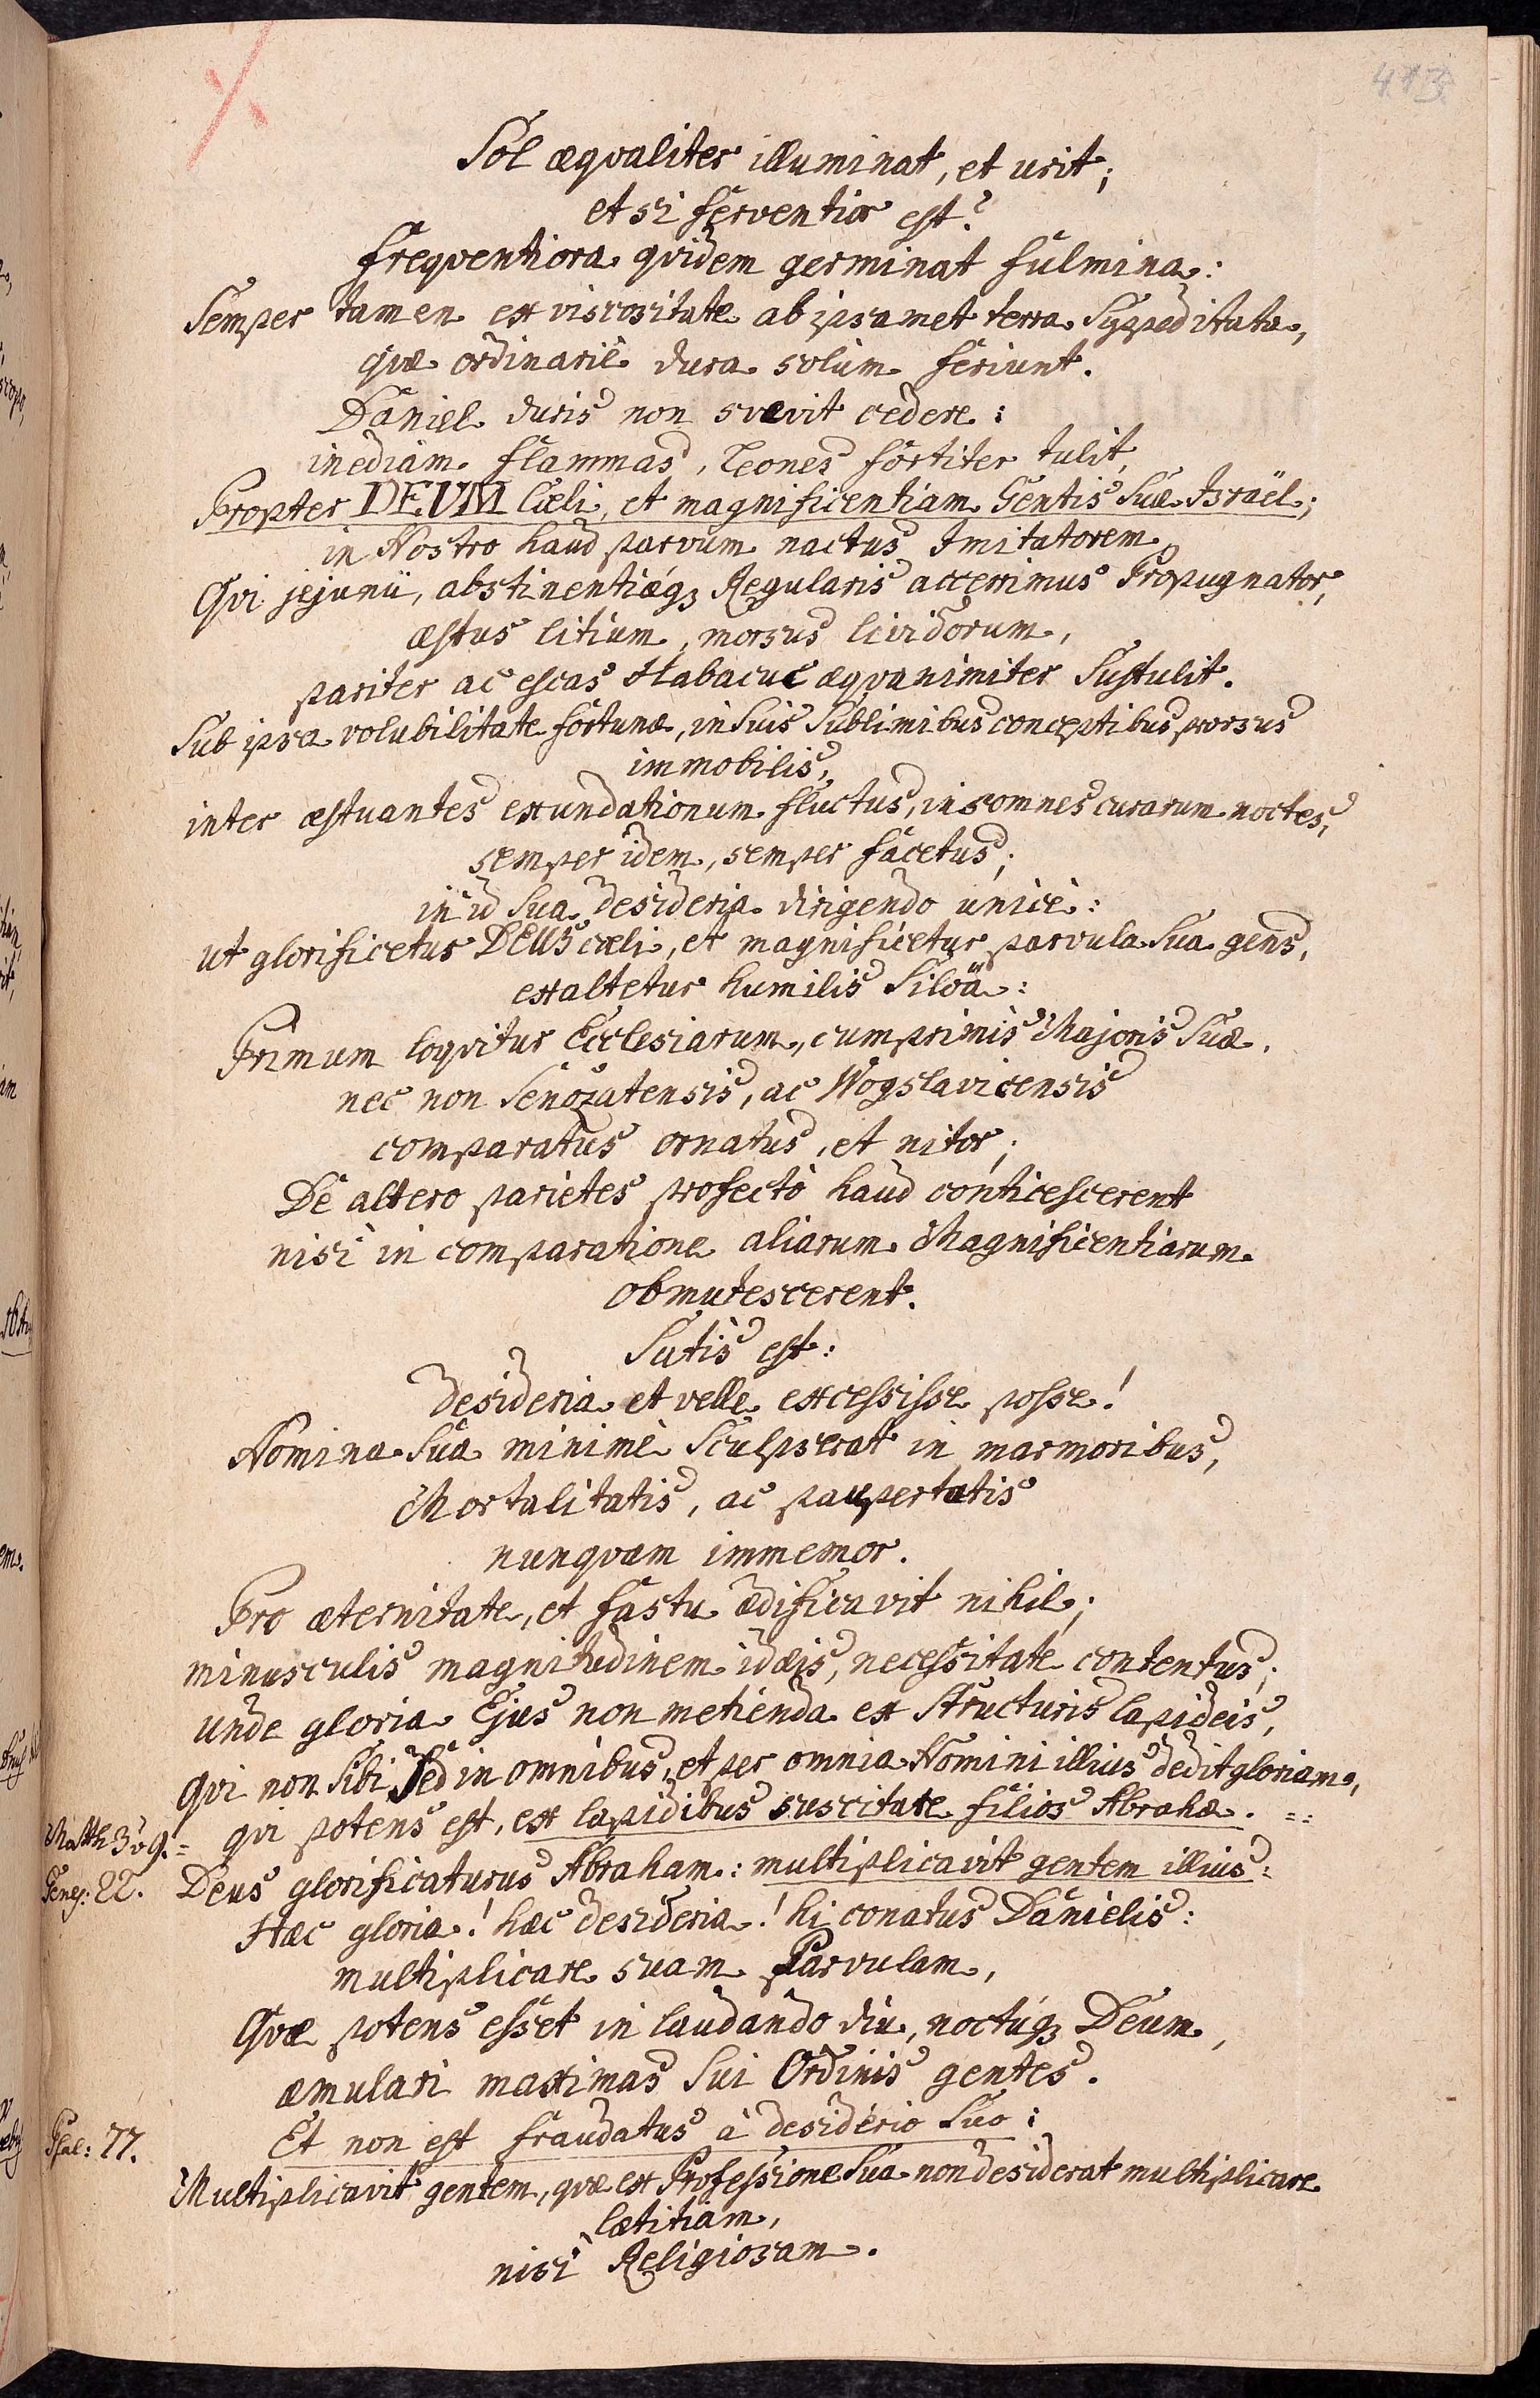 413
Sol æqvaliter illuminat, et urit;
et si ferventior est?
freqventiora qvidem germinat fulmina:
Semper tamen ex viscositate ab ipsamet terra Suppeditata,
qvæ ordinariè dura solùm feriunt.
Daniel duris non svevit cedere:
inediam flammas, leones fortiter tulit,
Propter DEUM Cæli, et magnificentiam Gentis Suæ Israël;
in Nostro haud parvum nactus Imitatorem,
Qvi jejunii, abstinentiæq3 Regularis acerrimus Propugnator,
æstus litium, morsus lividorum,
pariter ac escas Habacuc æqvanimiter Sustulit.
Sub ipsa volubilitate fortunæ, in Suis Sublimibus conceptibus prorsus
immobilis,
inter æstuantes exundationum fluctus, insomnes curarum noctes,
semper idem, semper facetus;
in id Sua desideria dirigendo unicè:
ut glorificetur DEUS cæli, et magnificetur parvula Sua gens,
exaltetur humilis Siloä:
Primum loqvitur Ecclesiarum, cumprimis Majoris Suæ,
nec non Senozatensis, ac Wogslavicensis
comparatus ornatus, et nitor;
De altero parietes profectò haud conticescerent
nisi in comparatione aliarum Magnificentiarum
obmutescerent.
Satis est:
desideria et velle excessisse posse!
Nomina Sua minimè Sculpserat in marmoribus,
Mortalitatis, ac paupertatis
nunqvam immemor.
Pro æternitate, et fastu ædificavit nihil;
minusculis magnitudinem idæis, necessitate contentus;
unde gloria Ejus non metienda ex Structuris lapideis,
qvi non Sibi Sed in omnibus, et per omnia Nomini illius dedit gloriam,
Matth 3 v 9. = qvi potens est, ex lapidibus suscitare filios Abrahæ. =:
Genes: 22. Deus glorificaturus Abraham: multiplicavit gentem illius:
Hæc gloria! hæc desideria! hi conatus Danielis:
multiplicare suam Parvulam,
Qvæ potens esset in laudando diu, noctúq3 Deum,
æmulari maximas Sui Ordinis gentes.
Psal: 77. Et non est fraudatus à desiderio Suo:
Multiplicavit gentem, qvæ ex Professione Sua non desiderat multiplicare
lætitiam,
nisi Religiosam.